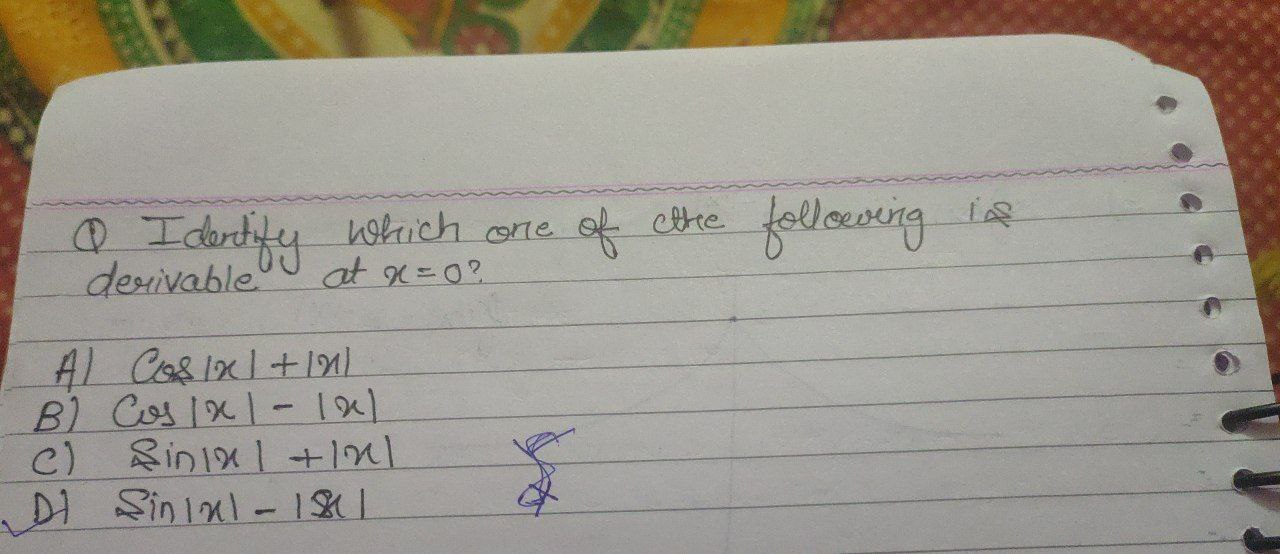 Q Identify which one of the following is
derivable at x=0?
A) Cos|x|+|x|
B) Cos|x|-|x|
C) Sin|x|+|x|
D) Sin|x|-|x|